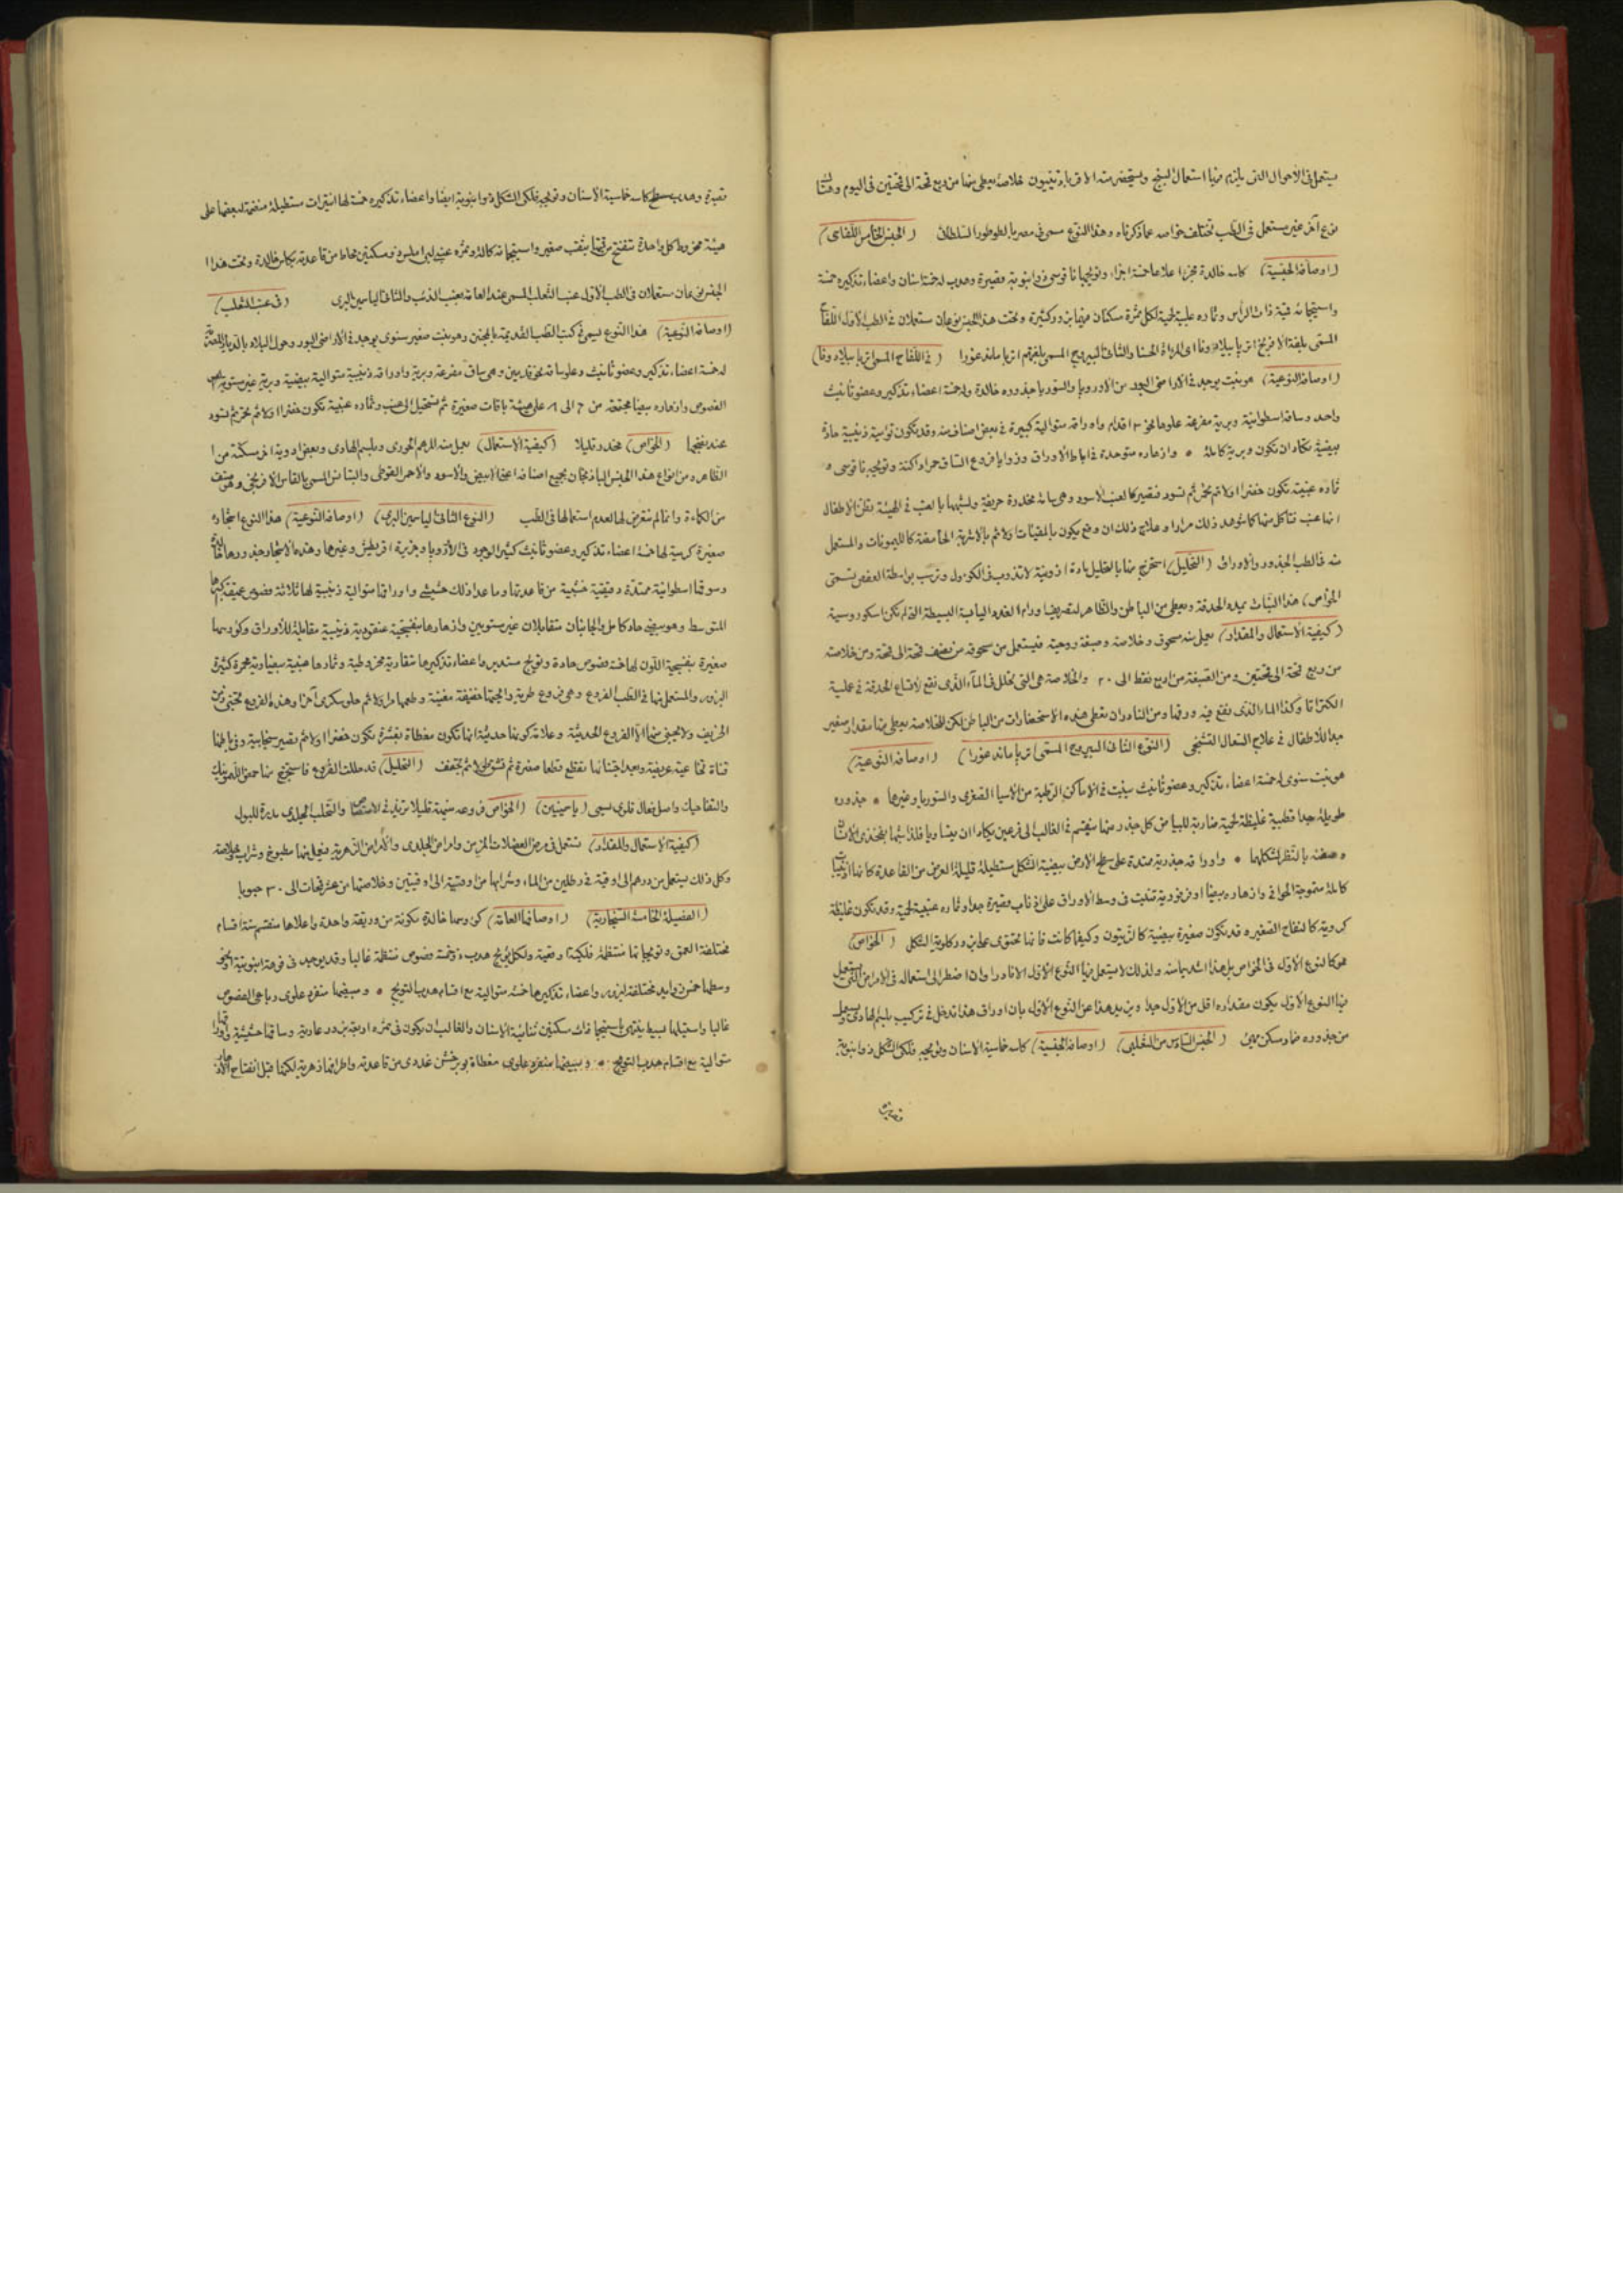 يستعمل فى الأحوال التى يلزم فيها استعمال البنج ويستحضر منه الاقرباذينيون خلاصة يعطى منها من ربع قمحة الى قمحتين فى اليوم وهناك
نوع آخر غير مستعمل فى الطب تختلف خواصه عما ذكرناه وهذا النوع مسمى فى مصر بالطوطور السلطان (الجنس الخامس اللفاحى)
(اوصافه الجنسية) كاسه خالدة مجزا اعلاها خمسة اجزاء وتويجها ناقوسى ذو انبوبة قصيرة وهدب له خمسة اسنان واعضاء تذكيره خمسة
واستيجماته قبية ذات الرأس وثماره علبية لحمية لكل ثمرة سكنان فيهما بزور كثيرة وتحت هذا الجنس نوعان مستعملان فى الطب الاول اللفاح
المسمى بلغة الافرنج اتروپا بيلادونا اى المرأة الحسنا والثانى اليبروح المسمى بلغتهم اتروپا ماندغورا (فى اللفاح المسمى اتروپا بيلادونا)
(اوصافه النوعية) هو نبت يوجد فى الاراضى البور من الاوروپا والسوريا جذوره خالدة وله خمسة اعضاء تذكير وعضو تأنيث
واحد وساقه اسطوانية وبرية متفرعة علوها نحو ٣ اقدام واوراقه متوالية كبيرة فى بعض اصنافه وقد تكون توأمية ذنيبية حادة
بيضية تكاد ان تكون وبرية كاملة * وازهاره متوحدة فى اباط الأوراق وزوايا فروع الساق حمراء داكنة وتويجه ناقوسى و
ثماره عنبية تكون خضرا اولا ثم تحمر ثم تسود فتصير كالعنب الاسود وهى سامة مخدرة حريفة ولشبهها بالعنب فى الهيئة تظن الاطفال
انها عنب فتأكل منها كما شوهد ذلك مرارا وعلاج ذلك ان وقع يكون بالمقيئات اولا ثم بالاشربة الحامضة كالليمونات والمستعمل
منه فى الطب الجذور والاوراق (التحليل) استخرج منها بالتحليل مادة ازوتية لا تذوب فى الكؤول وترسب بواسطة العفص تسمى
(الخواص) هذا النبات يمدد الحدقة ويعطى من الباطن والظاهر لتصريف اورام الغدد اليابسة البسيطة التى لم تكن اسكوروسية
(كيفية الاستعمال والمقدار) يعمل منه مسحوق وخلاصة وصبغة روحية فيستعمل من مسحوقه من نصف قمحة الى قمحة ومن خلاصته
من ربع قمحة الى قمحتين ومن الصبغة من اربع نقط الى ٢٠ والخلاصة هى التى تحلل فى المآء الذى نفع لاتساع الحدقة فى عملية
الكتراتا وكذا الماء الذى نقع فيه ورقها ومن النادر ان تعطى هذه الاستحضارات من الباطن لكن الخلاصة يعطى منها مقدار صغير
جدا للاطفال فى علاج السعال التشنجى (النوع الثانى اليبروح المسمى اتروپا ماندغورا) (اوصافه النوعية)
هو نبت سنوى له خمسة اعضاء تذكير وعضو تأنيث ينبت فى الاماكن الرطبة من الاسيا الصغرى والسوريا وغيرها * جذوره
طويلة جدا قطبية غليظة لحمية ضاربة للبياض كل جذر منها ينقسم فى الغالب الى فرعين يكادان يتساويا فلذا شبها بفخذى الانسان
وصفته بالنظر لشكلهما * واوراقه جذرية ممتدة على سطح الارض بيضية الشكل مستطيلة قليلة العرض من القاعدة كانها اذنيبات
كاملة متموجة الحوافى وازهاره بيضا او فرفورية تنبت فى وسط الاوراق على اذناب قصيرة جدا وثماره عنبية لحمية وقد تكون غليظة
كروية كالتفاح الصغير وقد تكون صغيرة بيضية كالزيتون وكيفما كانت فانها تحتوى على بزور كلوية الشكل (الخواص)
هو كالنوع الاول فى الخواص بل هذا اشد سما منه ولذلك لا يستعمل فيما النوع الاول الا نادرا وان اضطر الى استعماله فى الامراض التى يستعمل
فيها النوع الاول يكون مقداره اقل من الاول جدا ويزيد هذا عن النوع الاول بان اوراق هذا تدخل فى تركيب بلسم الهادى ويعمل
من جذوره ضماد سكن مهيئ (الجنس السادس من المغلبى) (اوصافه الجنسية) كاسه خماسية الاسنان وتويجه فلكى الشكل ذو انبوبة
قصيرة
قصيرة وهدب مسطح كاسه خماسية الاسنان وتويجه فلكى الشكل ذو انبوبة ايضا واعضاء تذكيره خمسة لها انتيرات مستطيلة منضمة لبعضها على
هيئة مخروط كل واحدة تنفتح من قمتها بثقب صغير واستيجماته كالة وثمره عنبى املس ذو سكنين محاط من قاعدته بكاس خالدة وتحت هذا
الجنس نوعان مستعملان فى الطب الاول عنب الثعلب المسمى عند العامة بعنب الذئب والثانى الياسمين البرى (فى عنب الثعلب)
(اوصافه النوعية) هذا النوع يسمى فى كتب الطب القديمة بالمجنن وهو نبت صغير سنوى يوجد فى الاراضى البور وحول البلاد بالديار
له خمسة اعضاء تذكير وعضو تأنيث وعلو ساقه نحو قدمين وهى ساق متفرعة وبرية واوراقه ذنيبية متوالية بيضية وبرية غير مستوية
الفصوص وازهاره بيضا مجتمعة من ٦ الى ٨ على هيئة باقات صغيرة ثم تستحيل الى عنب وثماره عنبية تكون خضرا اولا ثم تحمر ثم تسود
عند نضجها (الخواص) مخدر قليلا (كيفية الاستعمال) يعمل منه المرهم الحورى وبلسم الهادى وبعض ادوية اخر مسكنة من
الظاهر ومن انواع هذا الجنس الباذنجان بجميع اصنافه اعنى الابيض والاسود والاحمر القوطى والبتاتس المسمى بالقلقاس الافرنجى وهى صنف
من الكماءة وانما لم نتعرض لها لعدم استعمالها فى الطب (النوع الثانى الياسمين البرى) (اوصافه النوعية) هذا النوع اشجاره
صغيرة كرمية لها خمسة اعضاء تذكير وعضو تأنيث كثير الوجود فى الاوروپا وجزيرة اقريطش وغيرها وهذه الاشجار جذورها
وسوقها اسطوانية ممتدة رقيقة خشبية من قاعدتها وما عدا ذلك حشيشى واوراقها متوالية ذنيبية لها ثلاثة فصوص عميقة
المتوسط وهو بيضى حاد كامل والجانبان متقابلان غير مستويين وازهارها بنفسجية عنقودية ذنيبية مقابلة للأوراق وكؤوسها
صغيرة بنفسجية اللون لها خمسة فصوص حادة وتويج مستدير واعضاء تذكيرها متقاربة مخروطية وثمارها عنبية بيضاوية محمرة كثيرة
البزور والمستعمل منها فى الطب الفروع وهى فروع طرية رائحتها خفيفة مغثية وطعمها مر اولا ثم حلو سكرى آخرا وهذه الفروع تجتنى زمن
الخريف ولا يجنى منها الا الفروع الحديثة وعلامة كونها حديثة انها تكون مغطاة بقشرة تكون خضرا اولا ثم تصير سنجابية وفى باطنها
قناة نخاعية عريضة وبعد اجتنائها تقطع قطعا صغيرة ثم تشق طولا ثم تجفف (التحليل) قد حللت الفروع فاستخرج منها حمض الليمونيك
والتفاحيك واصل فعال قلوى يسمى (ياسمينين) (الخواص) فروعه منبهة قليلا تزيد فى الامتصاص والتحلب الجلدى مدرة للبول
(كيفية الاستعمال والمقدار) تستعمل فى مرض العضلات المزمن وامراض الجلدى والأمراض الزهرية فيعمل منها مطبوخ وشراب وخلاصة
وكل ذلك يستعمل من درهم الى اوقية فى رطلين من الماء وشرابها من اوقية الى اوقيتين وخلاصتها من عشر قمحات الى ٣٠ حبوبا
(الفصيلة الخامسة الشجارية) (اوصافها العامة) كؤوسها خالدة مكونة من وريقة واحدة واعلاها منقسم ستة اقسام
مختلفة العمق وتويجاتها منتظمة فلكية رقيقة ولكل تويج هدب ذو خمسة فصوص منتظمة غالبا وقد يوجد فى فوهة انبوبته او فى
وسطها خمس زوايد مختلفة البروز واعضاء تذكيرها خمسة متوالية مع اقسام هدب التويج * ومبيضها منفرد علوى رباعى الفصوص
غالبا واستيلها بسيط ينتهى باستيجما ذات سكنين ثنائية الاسنان والغالب ان يكون فى ثمره اربعة بزور عارية وساقها حشيشية واوراقها
متوالية مع اقسام هدب التويج * ومبيضها منفرد علوى مغطاة بوبر خشن غددى من قاعدته واطرافها زهرية لكنها قبل انفتاح